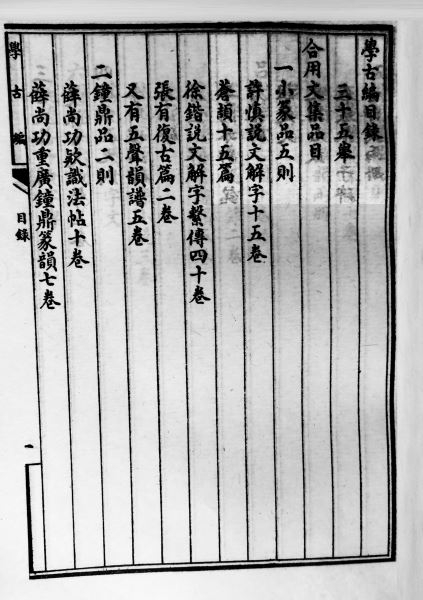 學古編目錄
三十五舉
合用文集品目
一小篆品五則
許慎說文解字十五卷
蒼頡十五篇
徐鍇說文解字繫傳四十卷
張有復古篇二卷
又有五聲韻譜五卷
二鐘鼎品二則
薛尚功欵識法帖十卷
薛尚功重廣鐘鼎篆韻七卷
學古編
目錄
一